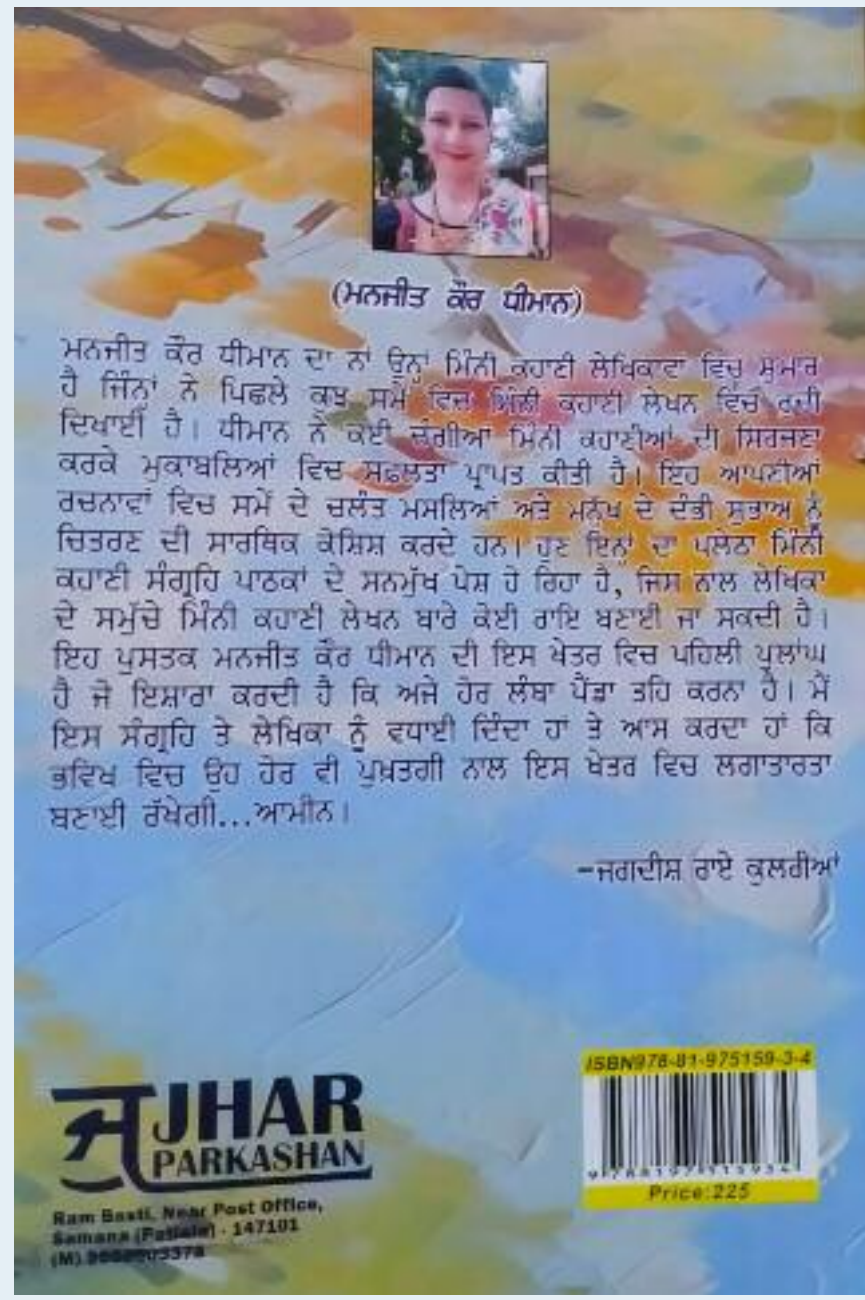 (ਮਨਜੀਤ ਕੌਰ ਧੀਮਾਨ)
ਮਨਜੀਤ ਕੌਰ ਧੀਮਾਨ ਦਾ ਨਾਂ ਉਨ੍ਹਾਂ ਮਿੰਨੀ ਕਹਾਣੀ ਲੇਖਿਕਾਵਾਂ ਵਿਚ ਸ਼ੁਮਾਰ
ਹੈ ਜਿੰਨ੍ਹਾਂ ਨੇ ਪਿਛਲੇ ਕੁਝ ਸਮੇਂ ਵਿਚ ਮਿੰਨੀ ਕਹਾਣੀ ਲੇਖਨ ਵਿੱਚ ਰੁਚੀ
ਦਿਖਾਈ ਹੈ। ਧੀਮਾਨ ਨੇ ਕਈ ਚੰਗੀਆਂ ਮਿੰਨੀ ਕਹਾਣੀਆਂ ਦੀ ਸਿਰਜਣਾ
ਕਰਕੇ ਮੁਕਾਬਲਿਆਂ ਵਿਚ ਸਫ਼ਲਤਾ ਪ੍ਰਾਪਤ ਕੀਤੀ ਹੈ। ਇਹ ਆਪਣੀਆਂ
ਰਚਨਾਵਾਂ ਵਿਚ ਸਮੇਂ ਦੇ ਚਲੰਤ ਮਸਲਿਆਂ ਅਤੇ ਮਨੁੱਖ ਦੇ ਦੰਭੀ ਸੁਭਾਅ ਨੂੰ
ਚਿਤਰਣ ਦੀ ਸਾਰਥਿਕ ਕੋਸ਼ਿਸ਼ ਕਰਦੇ ਹਨ। ਹੁਣ ਇਨ੍ਹਾਂ ਦਾ ਪਲੇਠਾ ਮਿੰਨੀ
ਕਹਾਣੀ ਸੰਗ੍ਰਹਿ ਪਾਠਕਾਂ ਦੇ ਸਨਮੁੱਖ ਪੇਸ਼ ਹੋ ਰਿਹਾ ਹੈ, ਜਿਸ ਨਾਲ ਲੇਖਿਕਾ
ਦੇ ਸਮੁੱਚੇ ਮਿੰਨੀ ਕਹਾਣੀ ਲੇਖਨ ਬਾਰੇ ਕੋਈ ਰਾਇ ਬਣਾਈ ਜਾ ਸਕਦੀ ਹੈ।
ਇਹ ਪੁਸਤਕ ਮਨਜੀਤ ਕੌਰ ਧੀਮਾਨ ਦੀ ਇਸ ਖੇਤਰ ਵਿਚ ਪਹਿਲੀ ਪੁਲਾਂਘ
ਹੈ ਜੋ ਇਸ਼ਾਰਾ ਕਰਦੀ ਹੈ ਕਿ ਅਜੇ ਹੋਰ ਲੰਬਾ ਪੈਂਡਾ ਤਹਿ ਕਰਨਾ ਹੈ। ਮੈਂ
ਇਸ ਸੰਗ੍ਰਹਿ ਤੇ ਲੇਖਿਕਾ ਨੂੰ ਵਧਾਈ ਦਿੰਦਾ ਹਾਂ ਤੇ ਆਸ ਕਰਦਾ ਹਾਂ ਕਿ
ਭਵਿਖ ਵਿਚ ਉਹ ਹੋਰ ਵੀ ਪੁਖ਼ਤਗੀ ਨਾਲ ਇਸ ਖੇਤਰ ਵਿਚ ਲਗਾਤਾਰਤਾ
ਬਣਾਈ ਰੱਖੇਗੀ...ਆਮੀਨ।
-ਜਗਦੀਸ਼ ਰਾਏ ਕੁਲਰੀਆਂ
ISBN978-81-975159-3-4
9 788197 515934
Price:225
JHAR
PARKASHAN
Ram Basti, Near Post Office,
Samana (Patiala) - 147101
(M)